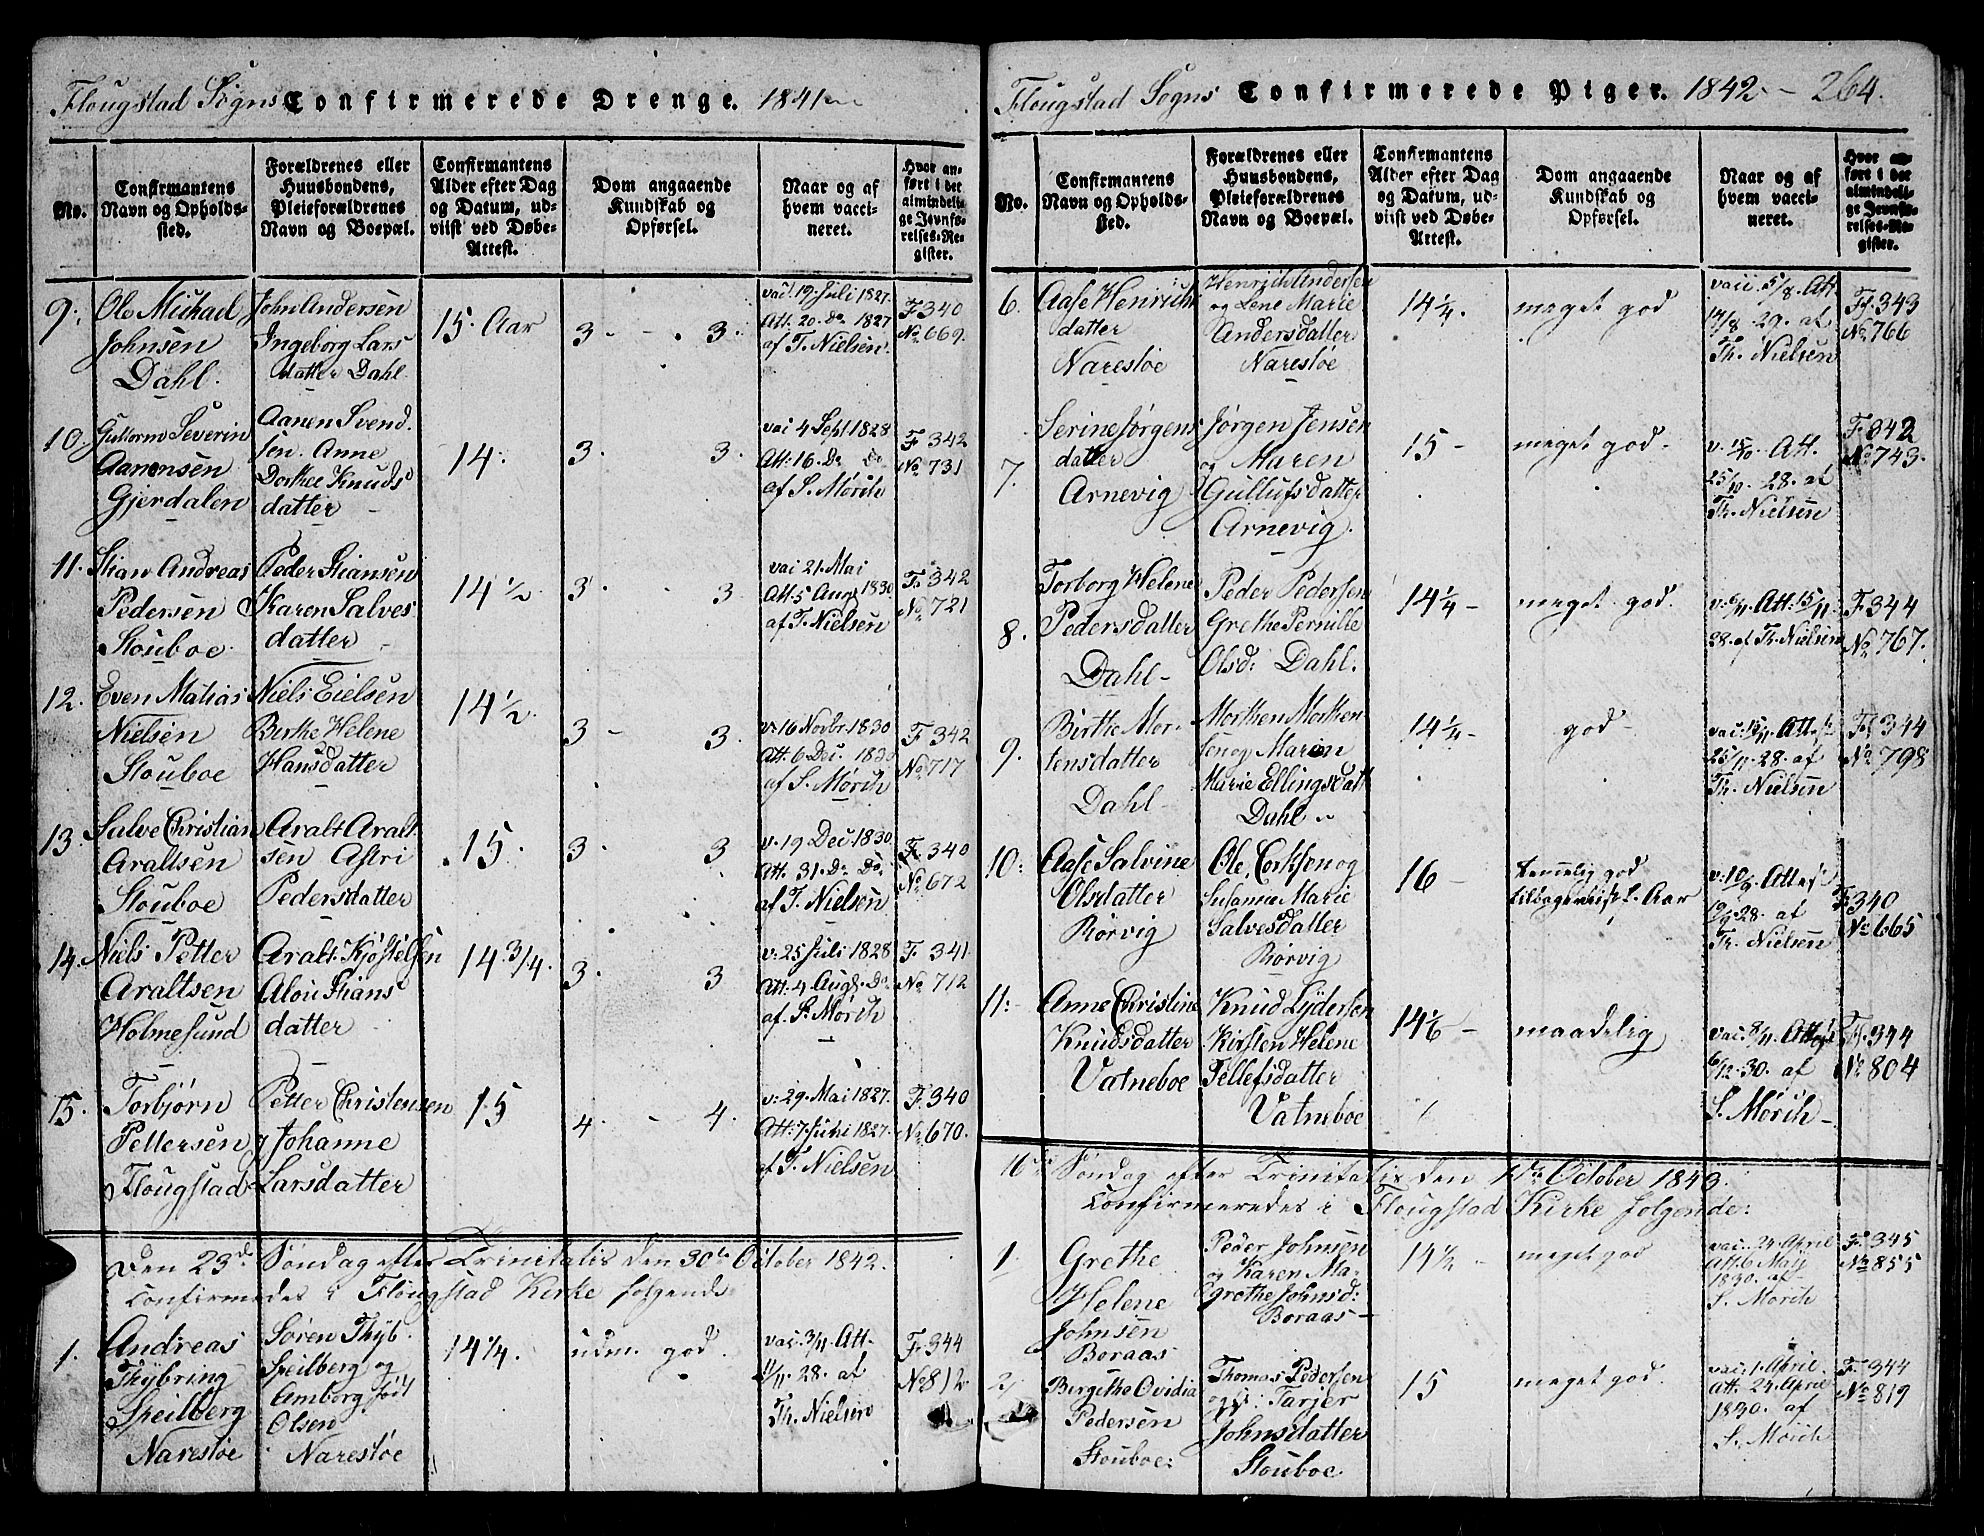 Flougstad Sogns Confirmerede Drenge. 1841
No.
Confirmantens Navn og Opholdssted.
Forældrenes eller Huusbondens, Pleieforældrenes Navn og Boepæl.
Confirmantens Alder efter Dag og Datum, udviist ved Døbe-Attest.
Dom angaaende Kundskab og Opførsel.
Naar og af hvem vaccineret.
Hvor anført i det almindelige Jevnførelses-Register.
9. Ole Michael John Andersen 15. Aar 3 - 3. vac. 19. Juli 1827. F. 340
Johnsen Ingeborg Lars Att. 20. Do 1827 No 669.
Dahl. datter Dahl af T. Nielsen.
10. Guttorm Severin Aanen Svend 14. 3. 3. vac 4 Sept 1828 F 342
Aanonsen sen. Anne Att: 16. Do Do No 731
Gjerdalen Dorthee Knuds af S. Mørch
datter -
11. Stian Andreas Peder Stiansen 14 1/2. 3. 3 vac 21. Mai F. 342
Pedersen Karen Salves Att: 5 Aug 1830 No 721
Stouboe. datter - af T. Nielsen
12. Even Matias Niels Eielsen 14 1/2. 3 - 3. v. 16 Novbr. 1830 F 342
Nielsen Birthe Helene Att: 6 Dec. 1830 No 717
Stouboe Hansdatter af S. Mørch
13. Salve Christian Aralt Aralt 15. 3. 3 v. 19 Dec. 1830 F. 340
Araltsen sen Astri Att. 31. Do Do. No 672
Stouboe Pedersdatter af T. Nielsen
14. Niels Petter Aralt Kjøstelsen 14 3/4. 3. 3 v: 25 Juli 1828 F. 341
Araltsen Stians Att: 4 Aug. Do. No 712
Holmesund datter af S. Mørch
15. Torbjørn Petter Christensen 15 4. - 4. v: 29. Mai 1827. F. 340
Pettersen Johanne Att: 7 1827. No 670.
Flougstad Larsdatter af T. Nielsen
Den 23de Søndag efter Trinitatis den 30te October 1842.
Confirmedes i Flougstad Kirke følgende
1. Andreas Søren Thyb. 14 1/4. udm. god. vac. 3/11. Att- F. 344
Thybring Speilberg og 11/11. 28. af No 812.
Speilberg Amborg Th. Nielsen
Narestøe Olsen
Narestøe
Flougstad Sogns Confirmerede Piger. 1842 - 264.
No.
Confirmantens Navn og Opholdssted.
Forældrenes eller Huusbondens, Pleieforældrenes Navn og Boepæl.
Confirmantens Alder efter Dag og Datum, udviist ved Døbe-Attest.
Dom angaaende Kundskab og Opførsel.
Naar og af hvem vaccineret.
Hvor anført i det almindelige Jevnførelses-Register.
6. Aase Henrichs Henrich Andersen 14 1/4. meget god vac. 5/8. Att F. 343
datter og Lene Marie 14/8. 29. af No 766
Narestøe Andersdatter Th. Nielsen
Narestøe
7. Serine Jørgens Jørgen Jensen 15 - meget god. v. 15/10. Att. F. 342
datter og Maren 25/10. 28. af No 743.
Arnevig Gullufsdatter Th. Nielsen
Arnevig.
8. Torborg Helene Peder Pedersen 14 1/4 - meget god. v: 6/11. Att: 15/11. F. 344
Pedersdatter Grethe Pernille 28. af Th. Nielsen No 767.
Dahl - Olsd: Dahl.
9. Birthe Mor- Morthen Morthen 14 1/4 - god - vac. 15/11. Attest F. 344
tensdatter sen og Maren 25/11. 28. af No 798
Dahl Marie Ellingsdatt Th. Nielsen
Dahl
10: Aase Salvine Ole og 16 - temmelig god v: 10/9. Attest F. 340
Olsdatter Susanne Marie tilbageviist 1. Aar 19/9. 28. af No 665
Rørvig Salvesdatter Th. Nielsen
Rørvig
11: Anne Christine Knud Lydersen 14 1/6 - maadelig vac. 8/11. Attest F. 344
Knudsdatter Kirsten Helene 6/12. 30. af No 804
Vatneboe Tellefsdatter S. Mørch -
Vatneboe
16de Søndag efter Trinitatis den 1ste October 1843.
Confirmeredes i Flougstad Kirke følgende:
1. Grethe Peder Johnsen 14 1/2 - meget god vac. 24. April F. 345
Helene og Karen Ma- Att. 6 May No 855
Johnsen grethe Johnsd: 1830. af
Boraas Boraas - S. Mørch
2. Bergithe Ovidia Thomas Pedersen 15 meget god. vac. 1. April. F. 344
Pedersen og Tarjer Att. 24 April No 819
Stouboe: Johnsdatter 1830. af
Stouboe S. Mørch